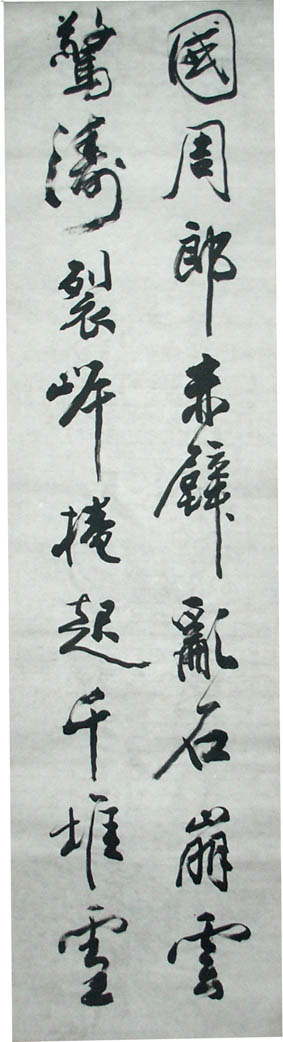 國周郎赤壁亂石崩雲
驚濤裂岸捲起千堆雪